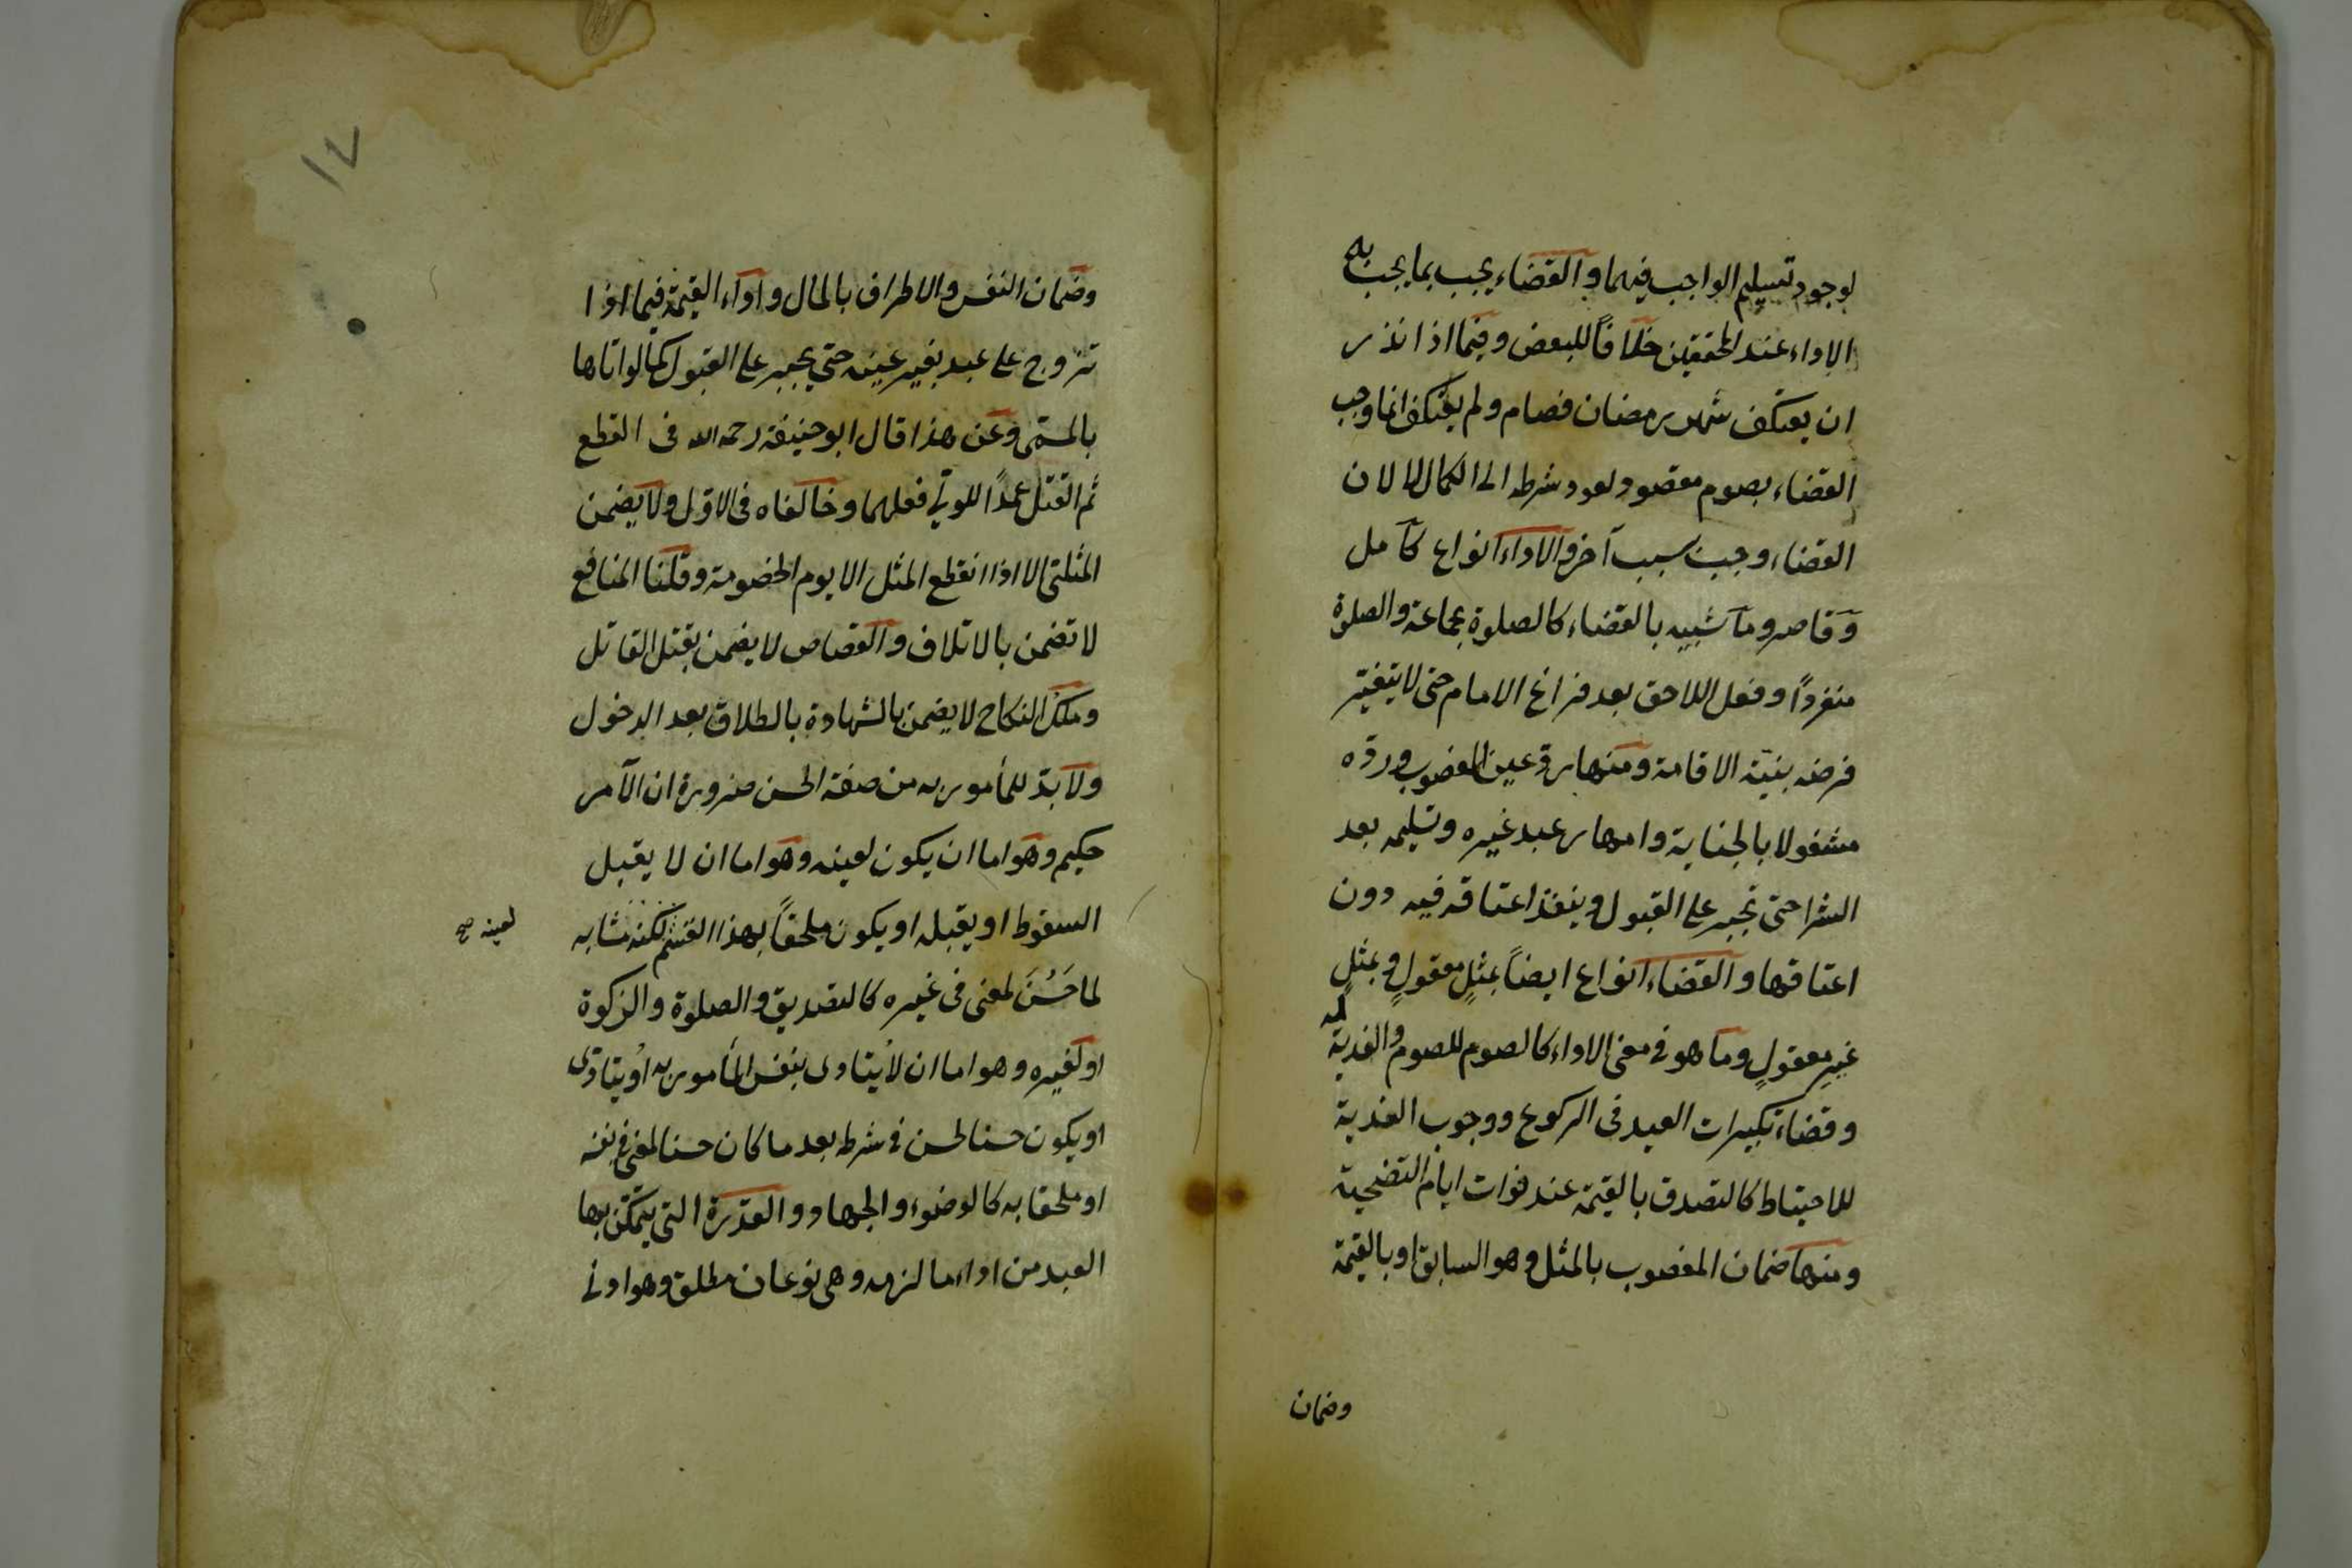 لوجود تسليم الواجب فيهما والقضاء يجب بما يجب به
الاداء عند المحققين خلافاً للبعض وفيما اذا نذر
ان يعتكف شهر رمضان فصام ولم يعتكف انما وجب
القضاء بصوم مقصود لعود شرطه الى الكمال لا لان
القضاء وجب بسبب آخر والاداء انواع كامل
وقاصر وما شبيه بالقضاء كالصلوة بجماعة والصلوة
منفرداً وفعل اللاحق بعد فراغ الامام حتى لا يتغير
فرضه بنية الاقامة ومنها رد عين المغصوب ورده
مشغولا بالجناية وامهار عبد غيره وتسليمه بعد
الشرا حتى تجبر على القبول وينفذ اعتاقه فيه دون
اعتاقها والقضاء انواع ايضاً بمثلٍ معقولٍ وبمثلٍ
غير معقولٍ وما هو في معنى الاداء كالصوم للصوم والفدية له
وقضاء تكبيرات العيد في الركوع ووجوب الفدية
للاحتياط كالتصدق بالقيمة عند فوات ايام التضحية
ومنها ضمان المغصوب بالمثل وهو السابق او بالقيمة
وضمان
١٢
وضمان النفس والاطراف بالمال واداء القيمة فيما اذا
تزوج على عبد بغير عينه حتى يجبر على القبول كما لو اتاها
بالمسمى وعن هذا قال ابو حنيفة رحمه الله فى القطع
ثم القتل عمداً للولي فعلهما وخالفاه فى الاول ولا يضمن
المثلى الا اذا انقطع المثل الا يوم الخصومة وقلنا المنافع
لا تضمن بالاتلاف والقصاص لا يضمن بقتل القاتل
وملك النكاح لا يضمن بالشهادة بالطلاق بعد الدخول
ولا بد للمأمور به من صفة الحسن ضرورة ان الآمر
حكيم وهو اما ان يكون لعينه وهو اما ان لا يقبل
السقوط او يقبله او يكون ملحقاً بهذا القسم لكنه مشابه
لعينه صح
لما حَسُنَ لمعنى فى غيره كالتصديق والصلوة والزكوة
او لغيره وهو اما ان لا يتادى بنفس المأمور به او يتادى
او يكون حسنا لحسن في شرطه بعد ما كان حسنا لمعنى في نفسه
او ملحقا به كالوضوء والجهاد والقدرة التى يتمكن بها
العبد من اداء ما لزمه وهى نوعان مطلق وهو ادنى